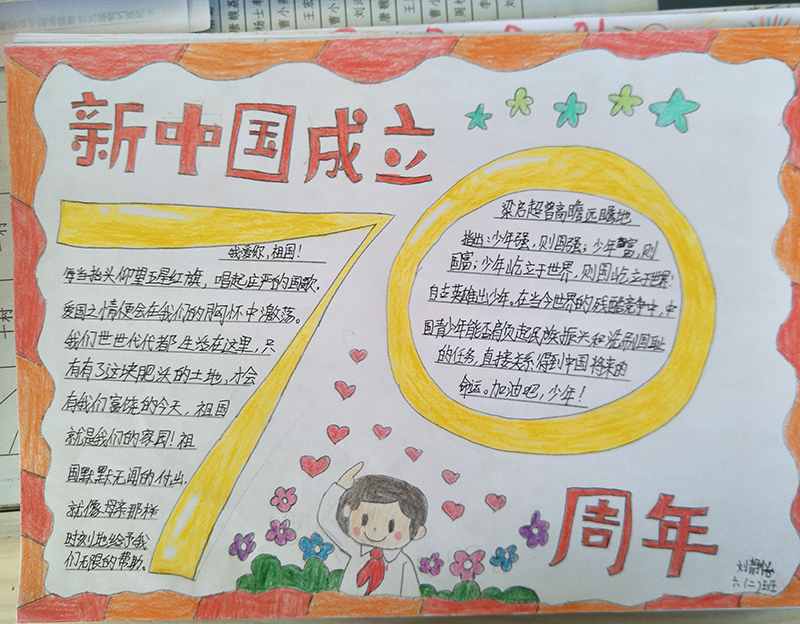 新中国成立
70
我爱你，祖国！
每当抬头仰望五星红旗，唱起庄严的国歌，
爱国之情便会在我们的胸怀中激荡。
我们世世代代都生活在这里，只
有有了这块肥沃的土地，才会
有我们富饶的今天，祖国
就是我们的家园！祖
国默默无闻的付出，
就像母亲那样
时刻地给予我
们无限的帮助。
梁启超曾高瞻远瞩地
指出：少年强，则国强；少年富，则
国富；少年屹立于世界，则国屹立于世界！
自古英雄出少年。在当今世界的残酷竞争中，中
国青少年能否肩负起民族振兴和洗刷国耻
的任务，直接关系得到中国将来的
命运。加油吧，少年！
周年
刘静怡
六(二)班